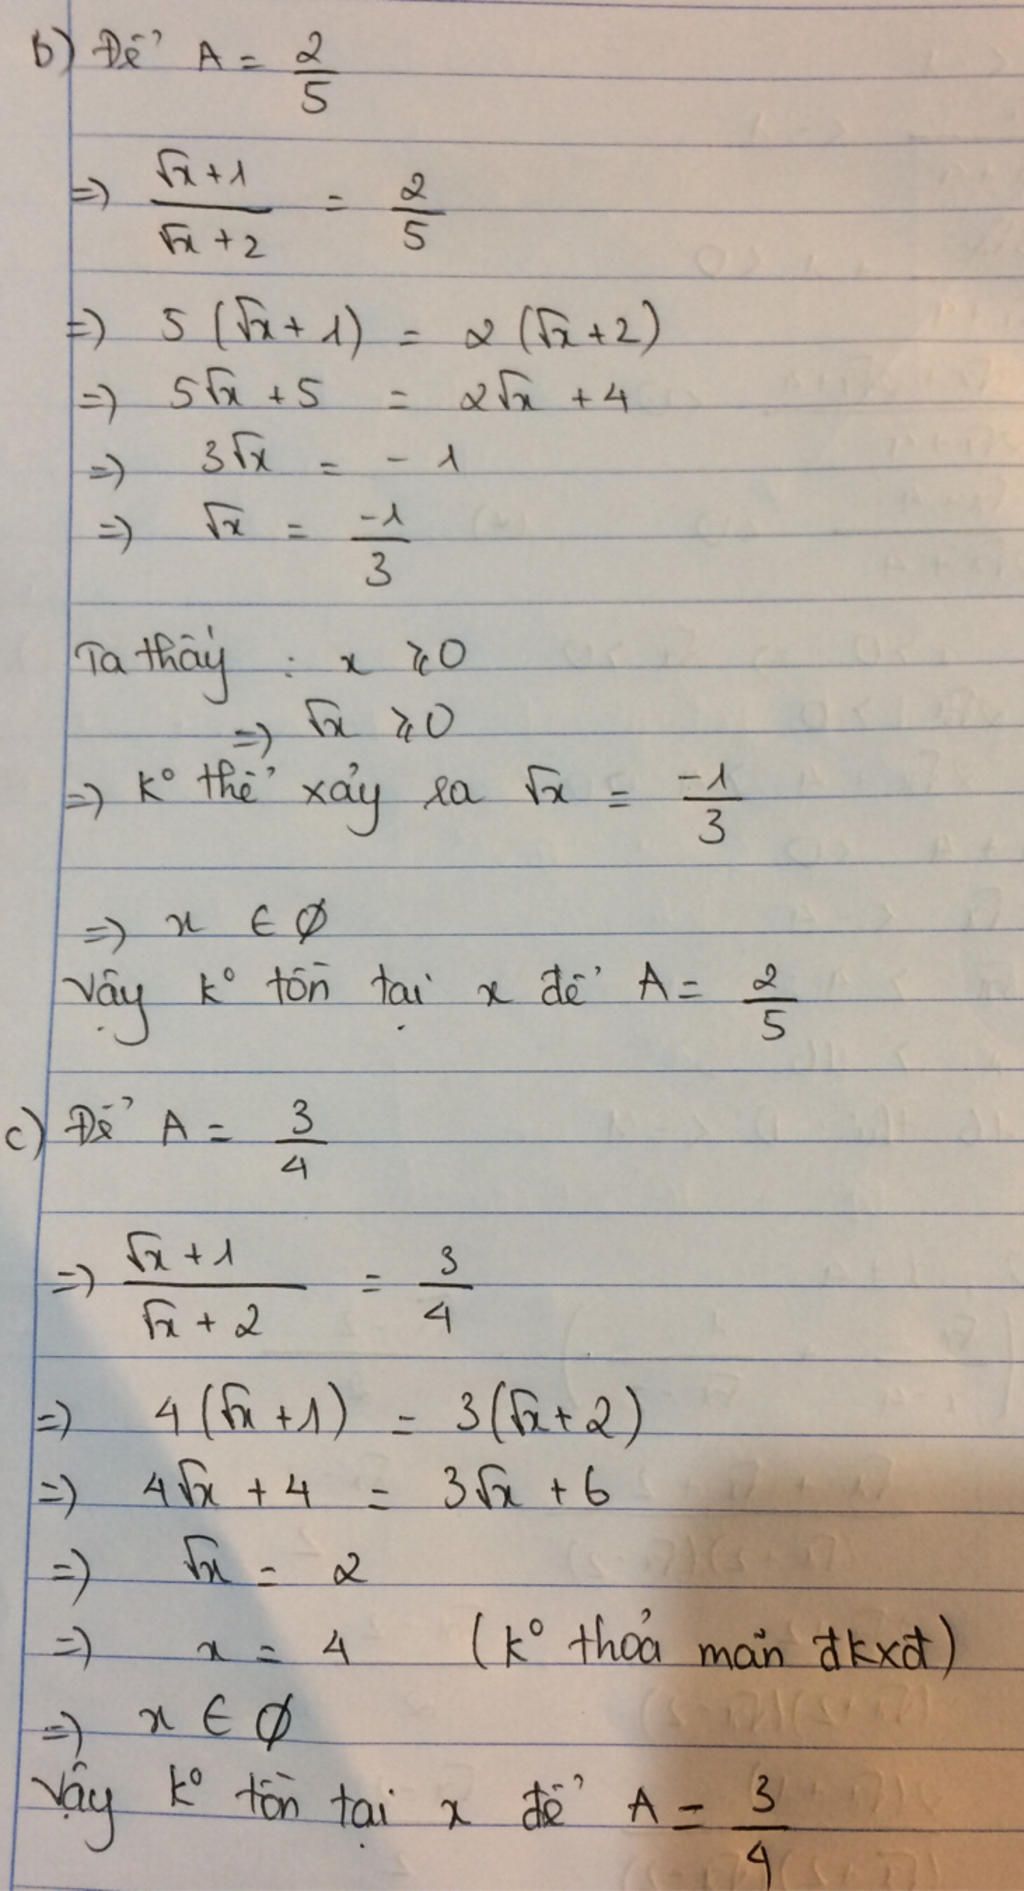 b) Để A = 2/5
=> (√x + 1)/(√x + 2) = 2/5
=> 5 (√x + 1) = 2 (√x + 2)
=> 5√x + 5 = 2√x + 4
=> 3√x = - 1
=> √x = -1/3
Ta thấy : x ⩾ 0
=> √x ⩾ 0
=> k° thể xảy ra √x = -1/3
=> x ∈ ∅
Vậy k° tồn tại x để A = 2/5
c) Để A = 3/4
=> (√x + 1)/(√x + 2) = 3/4
=> 4 (√x + 1) = 3 (√x + 2)
=> 4√x + 4 = 3√x + 6
=> √x = 2
=> x = 4 (k° thoả mãn đkxđ)
=> x ∈ ∅
Vậy k° tồn tại x để A = 3/4